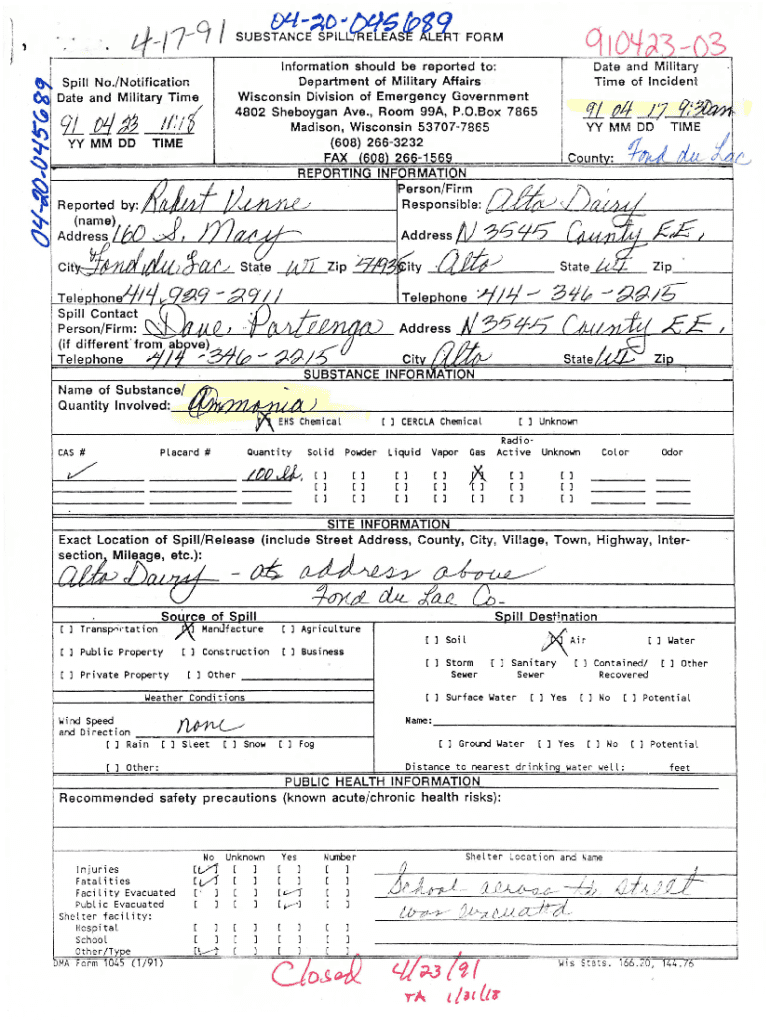 04-20-045689
4-17-91
SUBSTANCE SPILL/RELEASE ALERT FORM
910423-03
04-20-045689
Spill No./Notification
Date and Military Time
91 04 23 11:18
YY MM DD TIME
Information should be reported to:
Department of Military Affairs
Wisconsin Division of Emergency Government
4802 Sheboygan Ave., Room 99A, P.O.Box 7865
Madison, Wisconsin 53707-7865
(608) 266-3232
FAX (608) 266-1569
Date and Military
Time of Incident
91 04 17 9:30am
YY MM DD TIME
County: Fond du Lac
REPORTING INFORMATION
Reported by: Robert Venne
(name)
Address 160 S. Macy
City Fond du Lac State WI Zip 54935
Telephone 414-929-2911
Person/Firm
Responsible: Alto Dairy
Address N 3545 County E.E,
City Alto State WI Zip
Telephone 414-346-2215
Spill Contact
Person/Firm: Dave Parteenga Address N 3545 County EE,
(if different from above)
Telephone 414-346-2215 City Alto State WI Zip
SUBSTANCE INFORMATION
Name of Substance/
Quantity Involved: Ammonia
[X] EHS Chemical [ ] CERCLA Chemical [ ] Unknown
CAS # Placard # Quantity Solid Powder Liquid Vapor Gas Radio-Active Unknown Color Odor
✓ 100 lb. [ ] [ ] [ ] [ ] [X] [ ] [ ]
[ ] [ ] [ ] [ ] [ ] [ ] [ ]
[ ] [ ] [ ] [ ] [ ] [ ] [ ]
SITE INFORMATION
Exact Location of Spill/Release (include Street Address, County, City, Village, Town, Highway, Inter-
section, Mileage, etc.):
Alto Dairy - at address above
Fond du Lac Co-
Source of Spill
[ ] Transportation [X] Manufacture [ ] Agriculture
[ ] Public Property [ ] Construction [ ] Business
[ ] Private Property [ ] Other
Weather Conditions
Wind Speed
and Direction none
[ ] Rain [ ] Sleet [ ] Snow [ ] Fog
[ ] Other:
Spill Destination
[ ] Soil [X] Air [ ] Water
[ ] Storm Sewer [ ] Sanitary Sewer [ ] Contained/ Recovered [ ] Other
[ ] Surface Water [ ] Yes [ ] No [ ] Potential
Name:
[ ] Ground Water [ ] Yes [ ] No [ ] Potential
Distance to nearest drinking water well: feet
PUBLIC HEALTH INFORMATION
Recommended safety precautions (known acute/chronic health risks):
No Unknown Yes Number
Injuries [✓] [ ] [ ] [ ]
Fatalities [✓] [ ] [ ] [ ]
Facility Evacuated [ ] [ ] [✓] [ ]
Public Evacuated [ ] [ ] [✓] [ ]
Shelter facility:
Hospital [ ] [ ] [ ] [ ]
School [ ] [ ] [ ] [ ]
Other/Type [✓] [ ] [ ] [ ]
Shelter Location and Name
School across the street
was evacuated
DMA Form 1045 (1/91)
Wis Stats. 166.20, 144.76
Closed 4/23/91
TA 1/31/18